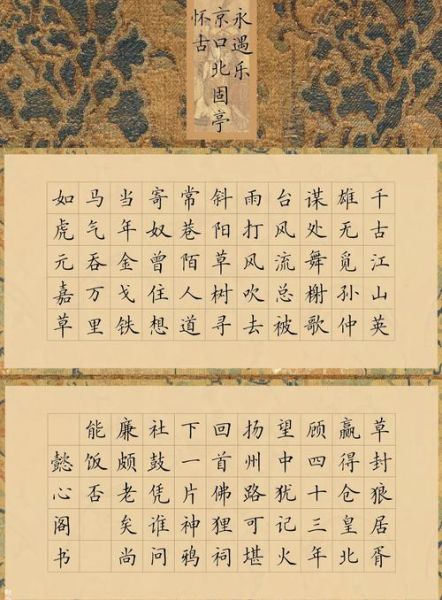 永遇乐
京口北固亭
怀古
千古江山英
雄无觅孙仲
谋处舞榭歌
台风流总被
雨打风吹去
斜阳草树寻
常巷陌人道
寄奴曾住想
当年金戈铁
马气吞万里
如虎元嘉草
草封狼居胥
赢得仓皇北
顾四十三年
望中犹记火
扬州路可堪
回首佛狸祠
下一片神鸦
社鼓凭谁问
廉颇老矣尚
能饭否
懿心阁书